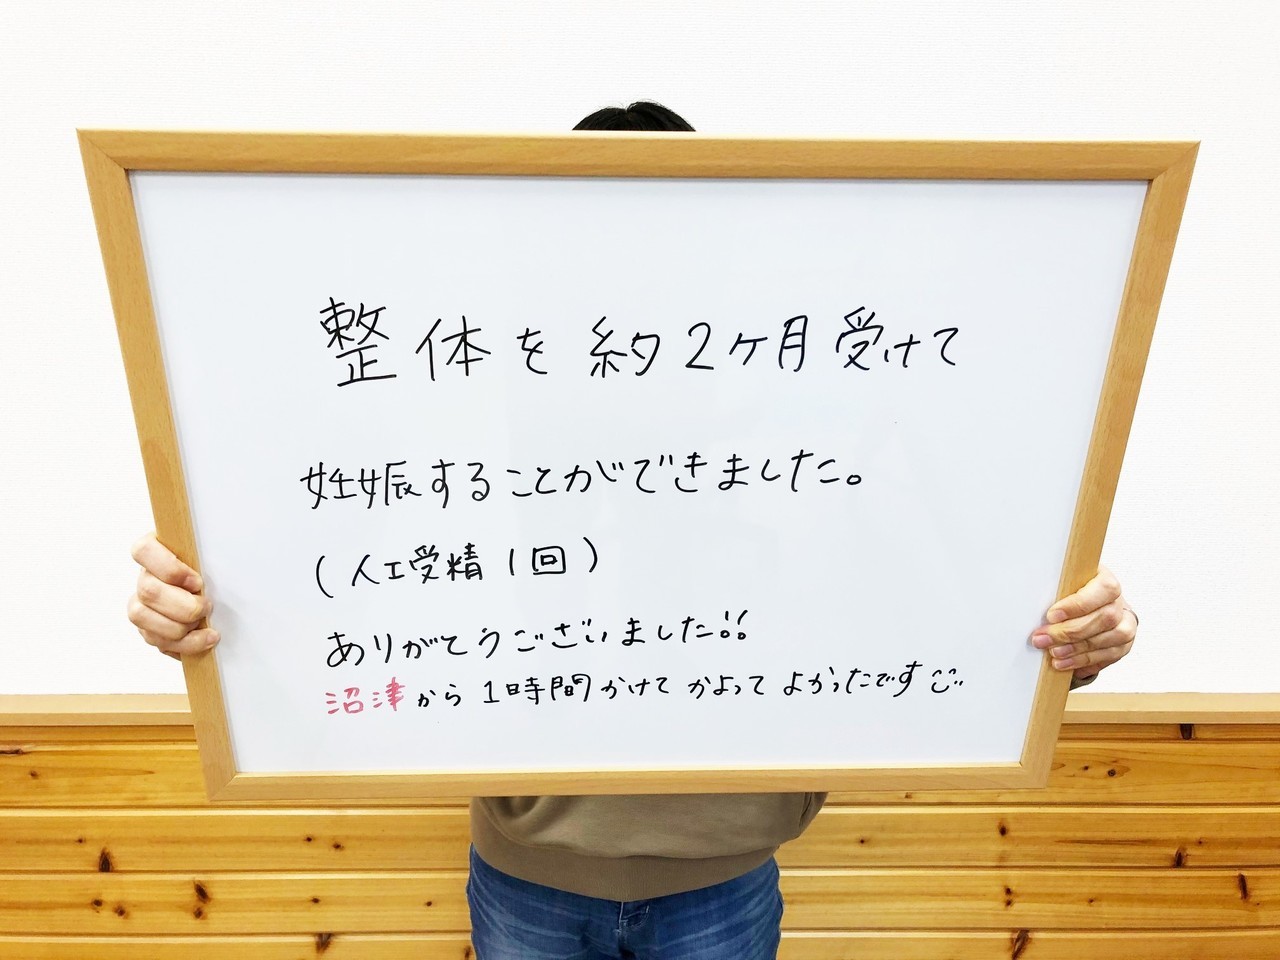 整体を約2ケ月受けて
妊娠することができました。
(人工受精1回)
ありがとうございました!!
沼津から1時間かけてかよってよかったです